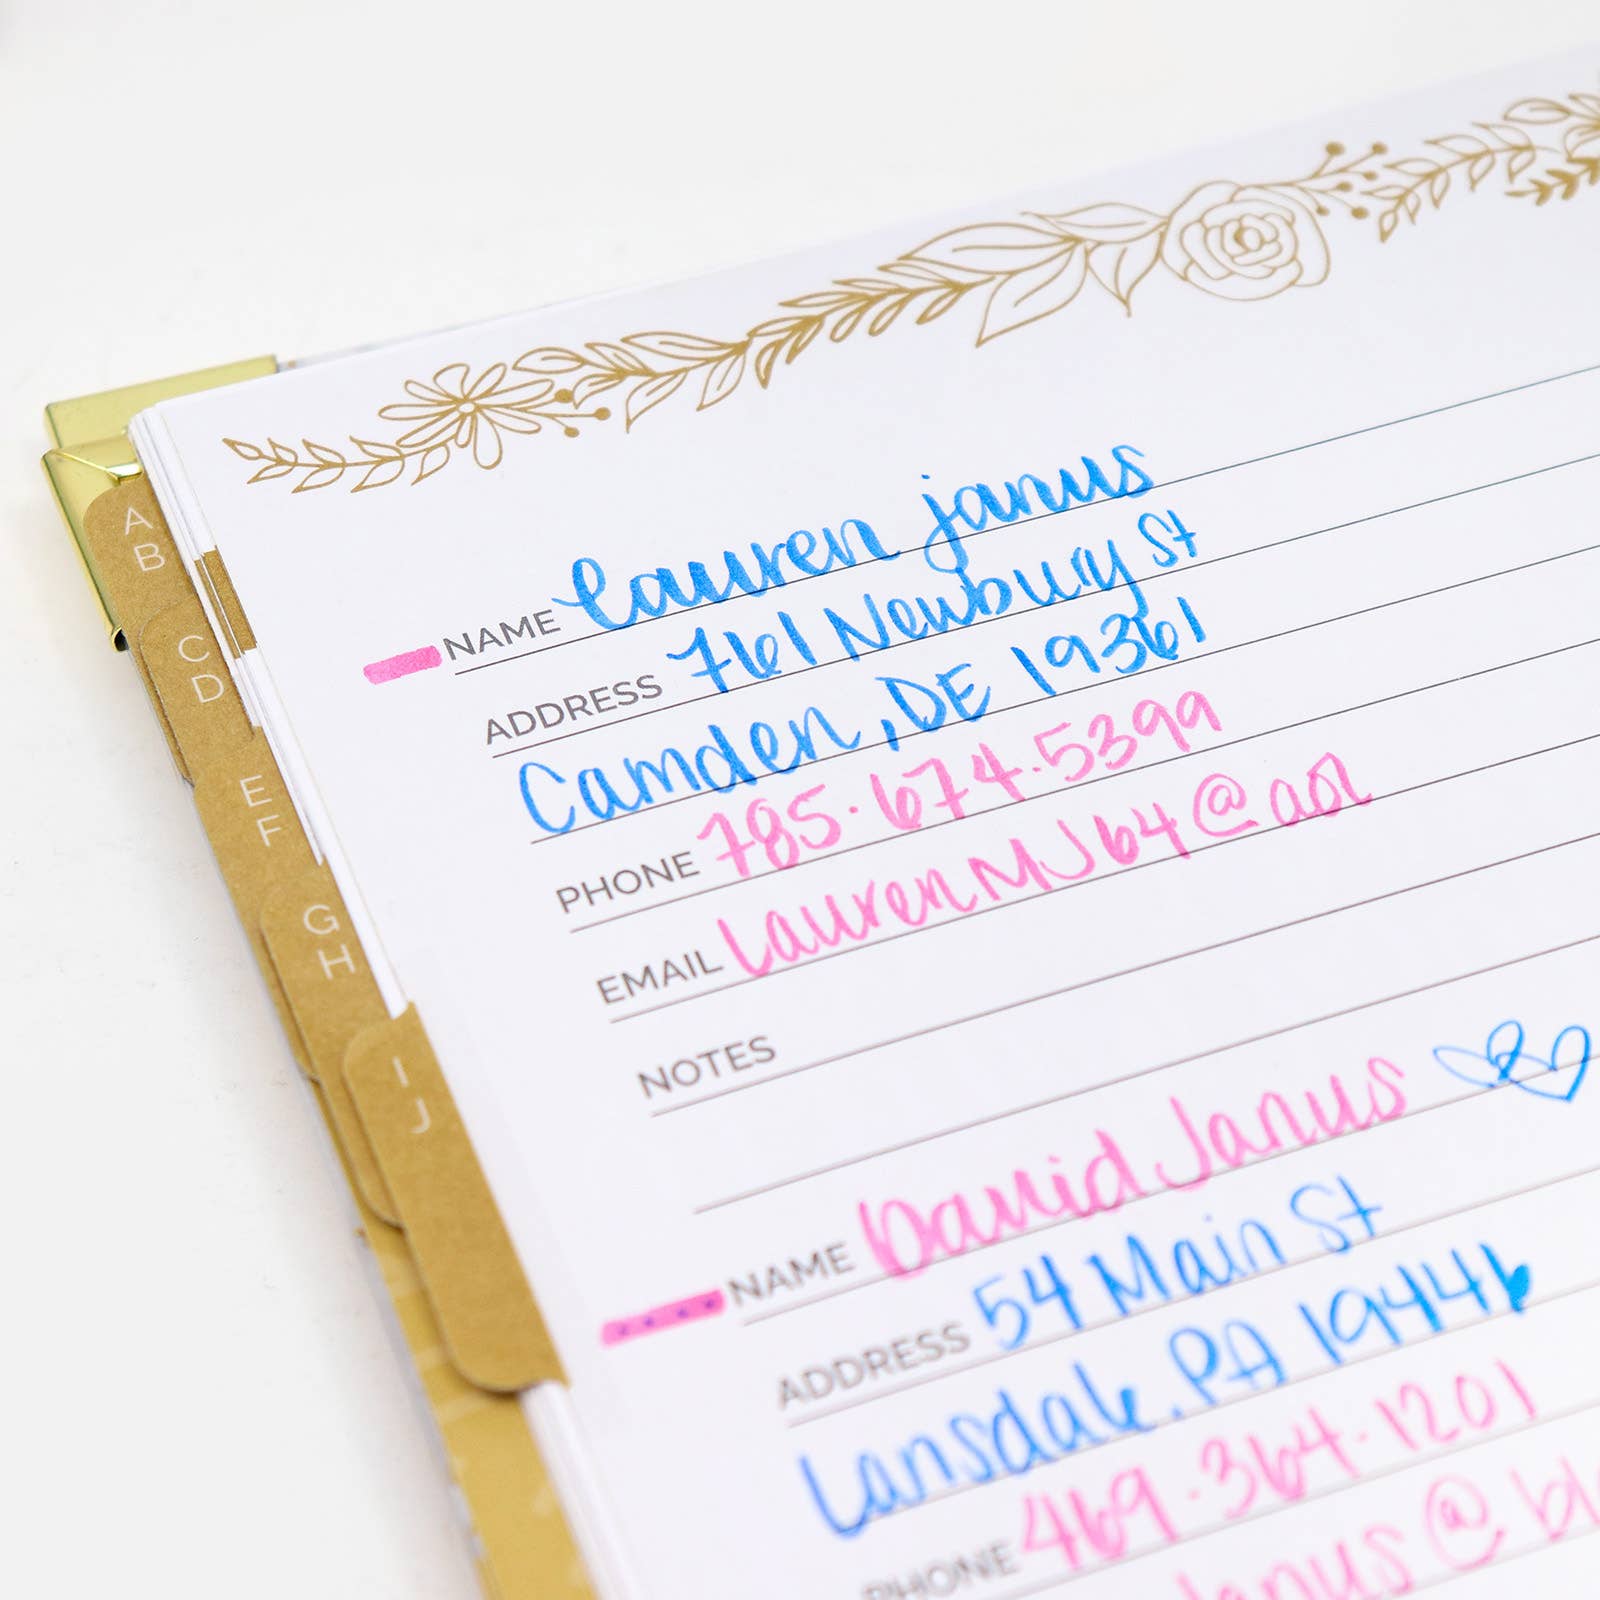 A
B
C
D
E
F
G
H
I
J
NAME Lauren Janus
ADDRESS 761 Newbury St
Camden, DE 19361
PHONE 785.674.5399
EMAIL LaurenMJ64@aol
NOTES
NAME David Janus
ADDRESS 54 Main St
Lansdale, PA 19446
PHONE 469.364.1201
Janus@bl